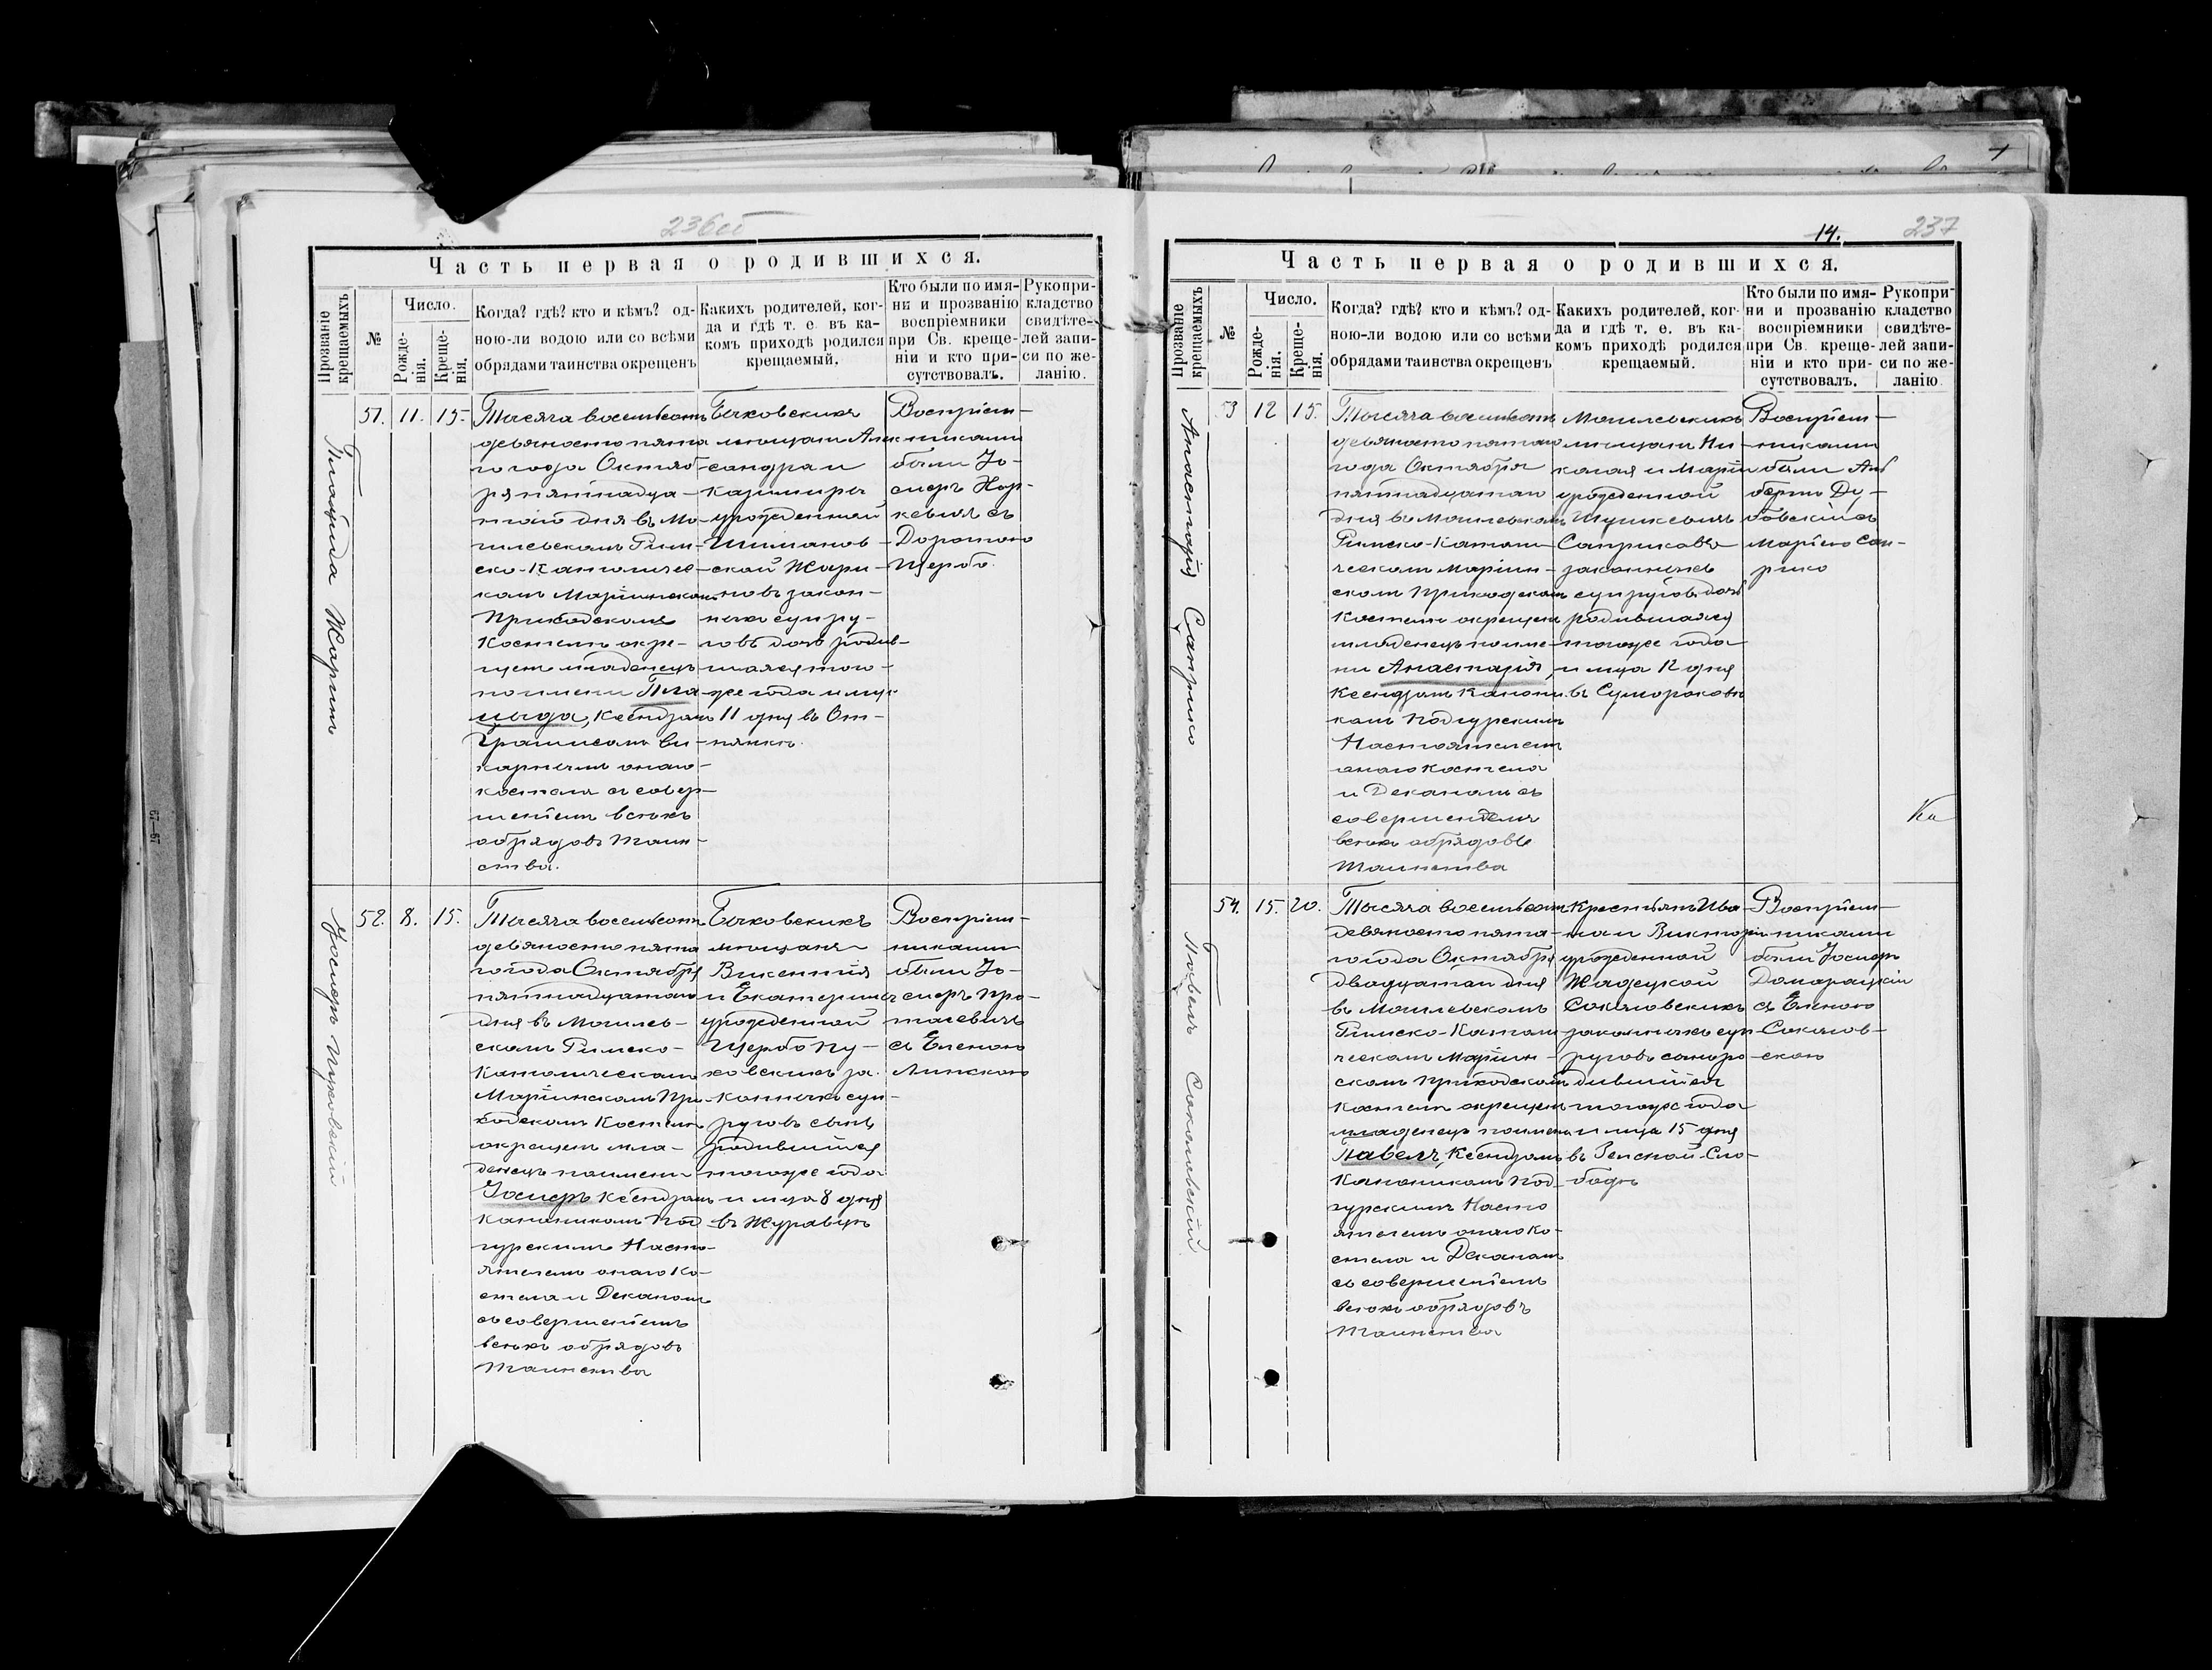 236об
Часть первая о родившихся.
Прозваніе крещаемыхъ
№
Число.
Рожде-
нія.
Креще-
нія.
Когда? гдѣ? кто и кѣмъ? од-
ною-ли водою или со всѣми
обрядами таинства окрещенъ
Какихъ родителей, ког-
да и гдѣ т. е. въ ка-
комъ приходѣ родился
крещаемый.
Кто были по имя-
ни и прозванію
воспріемники
при Св. креще-
ніи и кто при-
сутствовалъ.
Рукопри-
кладство
свидѣте-
лей запи-
си по же-
ланію.
51.
11.
15.
Тысяча восемьсотъ
девяносто пята
го года Октяб-
ря пятнадца-
таго дня въ Мо-
гилевскомъ Рим-
ско-Католичес-
комъ Маріинскомъ
Приходскомъ
Костелѣ окре-
щенъ младенецъ
по имени Пла-
цыда, Ксендзомъ
ви-
каріемъ онаго
костела съ совер-
шеніемъ всѣхъ
обрядовъ Таин-
ства.
Быховскихъ
мѣщанъ Алек
сандра и
Казимиры
урожденной
Шиманов-
ской Жари-
новъ закон-
ныхъ супру-
говъ дочь родив-
шаяся того-
же года и мца
11 дня въ
Воспріем-
никами
были Іо-
сифъ
съ
Доротою
Щербо.
52.
8.
15.
Іосифъ Пуховскій
Тысяча восемьсотъ
девяносто пята
го года Октября
пятнадцатаго
дня въ Могилев-
скомъ Римско-
Католическомъ
Маріинскомъ При-
ходскомъ Костелѣ
окрещенъ мла-
денецъ по имени
Іосифъ Ксендзомъ
Каноникомъ Под-
гурскимъ Насто-
ятелемъ онаго Ко-
стела и Деканомъ
съ совершеніемъ
всѣхъ обрядовъ
Таинства
Быховскихъ
мѣщанъ
Викентія
и Екатерины
урожденной
Щербо Пу-
ховскихъ за-
конныхъ суп-
руговъ сынъ
родившійся
тогоже года
и мца 8 дня
въ Журавцѣ
Воспріем-
никами
были Іо-
сифъ Про-
тасевичъ
съ Еленою
Липскою
14.
237
Часть первая о родившихся.
Прозваніе крещаемыхъ
№
Число.
Рожде-
нія.
Креще-
нія.
Когда? гдѣ? кто и кѣмъ? од-
ною-ли водою или со всѣми
обрядами таинства окрещенъ
Какихъ родителей, ког-
да и гдѣ т. е. въ ка-
комъ приходѣ родился
крещаемый.
Кто были по имя-
ни и прозванію
воспріемники
при Св. креще-
ніи и кто при-
сутствовалъ.
Рукопри-
кладство
свидѣте-
лей запи-
си по же-
ланію.
53
12
15.
Анастасія Саприко
Тысяча восемьсотъ
девяносто пятаго
года Октября
пятнадцатаго
дня въ Могилевскомъ
Римско-Католи-
ческомъ Маріин-
скомъ Приходскомъ
Костелѣ окрещенъ
младенецъ по име-
ни Анастасія,
Ксендзомъ Канони-
комъ Подгурскимъ
Настоятелемъ
онаго костела
и Деканомъ съ
совершеніемъ
всѣхъ обрядовъ
Таинства
Могилевскихъ
мѣщанъ Ни-
колая и Маріи
урожденной
Шушкевичъ
Саприковъ
законныхъ
супруговъ дочь
родившаяся
тогоже года
и мца 12 дня
въ
Воспріем-
никами
были Аль
бертъ Ду-
бовскій съ
Маріею Сап-
рико
54.
15.
20.
Павелъ Соколовскій
Тысяча восемьсотъ
девяносто пята-
го года Октября
двадцатаго дня
въ Могилевскомъ
Римско-Католи-
ческомъ Маріин-
скомъ Приходскомъ
костелѣ окрещенъ
младенецъ по имени
Павелъ, Ксендзомъ
Каноникомъ Под-
гурскимъ Насто
ятелемъ онаго Ко-
стела и Деканомъ
съ совершеніемъ
всѣхъ обрядовъ
Таинства
Крестьянъ Ива-
на и Викторіи
урожденной
Жадецкой
Соколовскихъ
законныхъ суп-
руговъ сынъ ро-
дившійся
тогоже года
и мца 15 дня
въ Сло-
бодѣ
Воспріем-
никами
были Іосифъ
Домарацкій
съ Еленою
Соколов-
скою